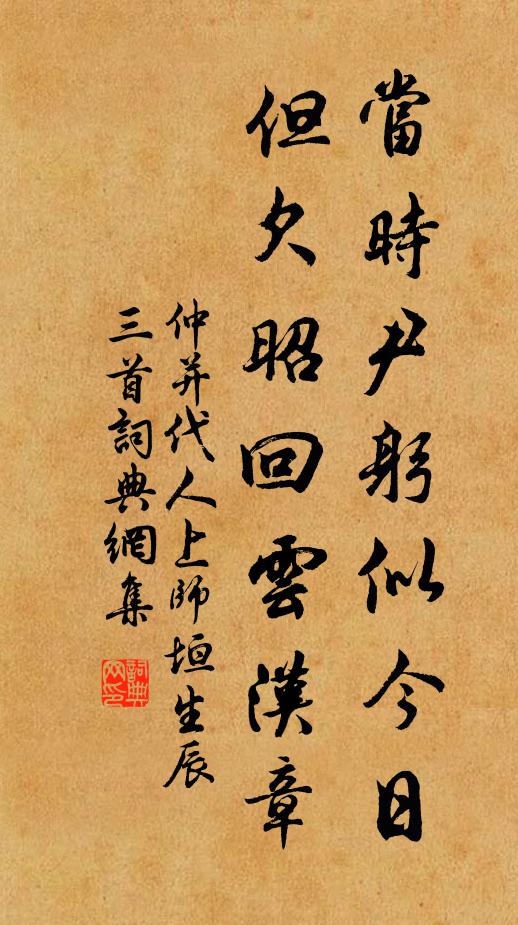 當時尹躬似今日
但欠昭回雲漢章
仲并代人上師垣生辰
三首詞典網集
詞典
网印